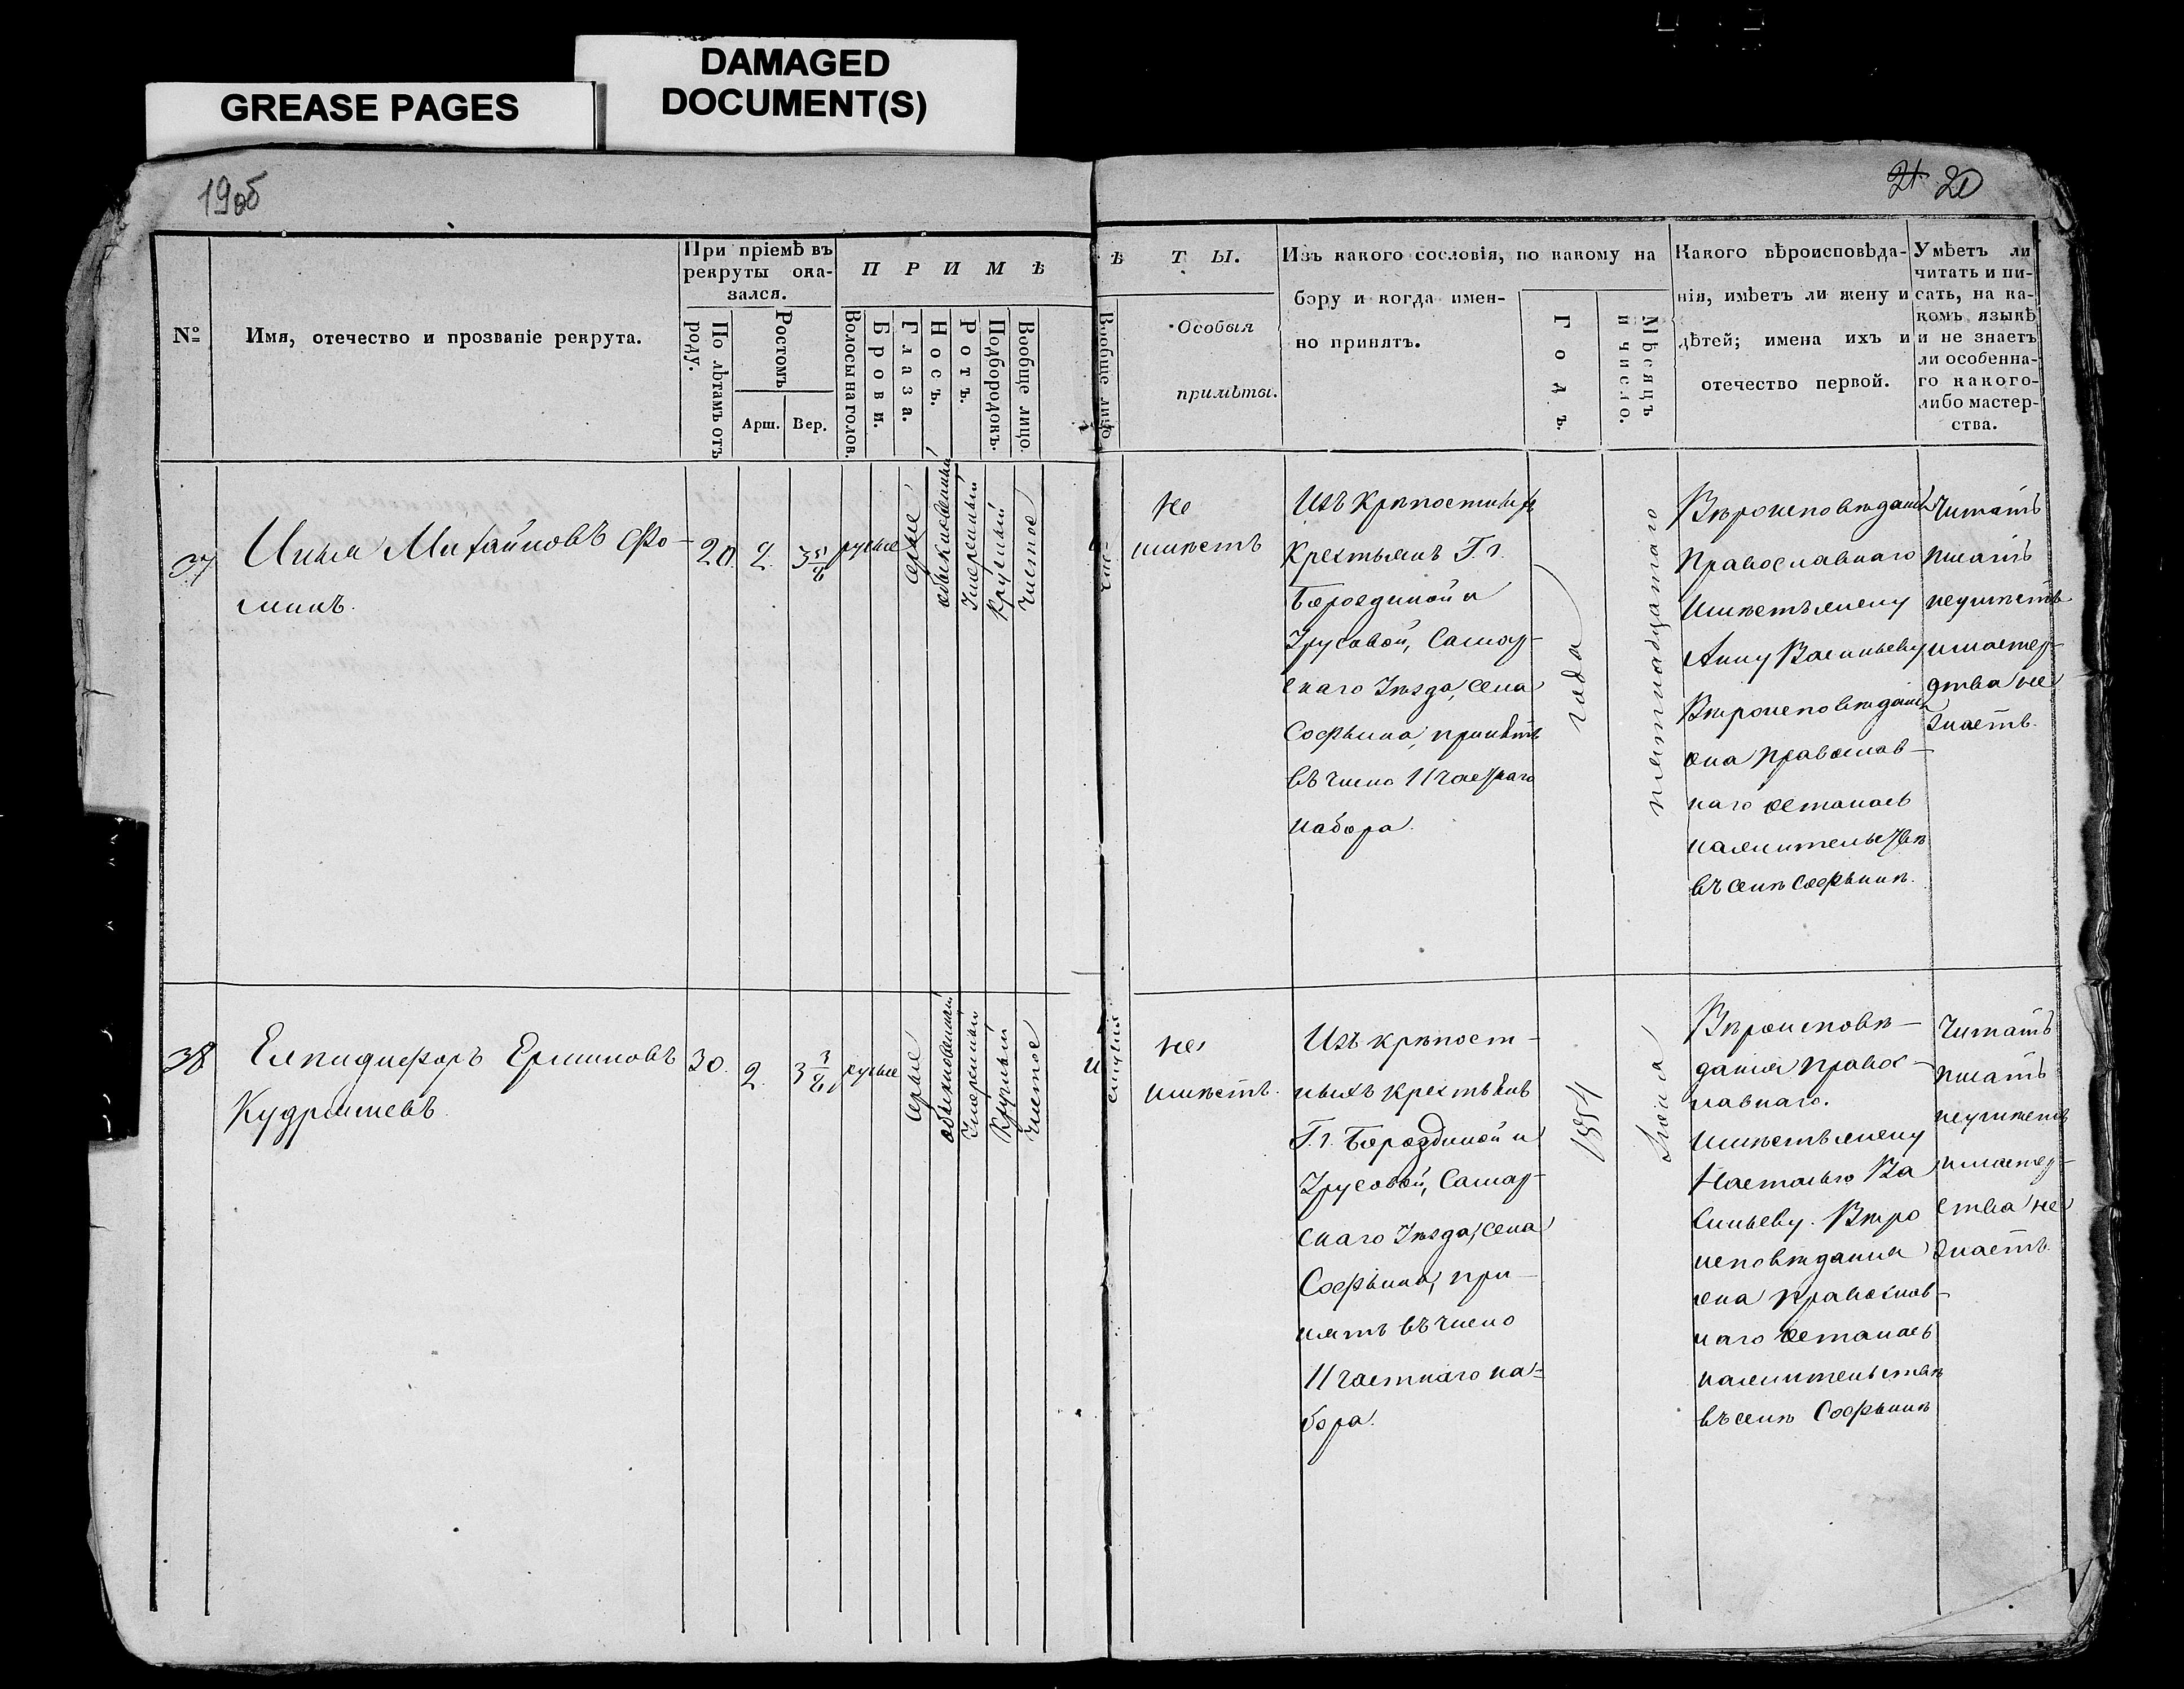 GREASE PAGES
DAMAGED
DOCUMENT(S)
19об
21. 20
№
Имя, отечество и прозваніе рекрута.
При пріемѣ въ
рекруты ока-
зался.
По лѣтамъ отъ
роду.
Ростомъ
Арш.
Вер.
П Р И М Ѣ
Волосы на голов.
Брови.
Глаза.
Носъ.
Ротъ.
Подбородокъ.
Вообще лицо.
Ѣ Т Ы.
Вообще лицо.
Особыя
примѣты.
Изъ какого сословія, по какому на
бору и когда имен-
но принятъ.
Годъ.
Мѣсяцъ
и число.
Какого вѣроисповѣда-
нія, имѣетъ ли жену и
дѣтей; имена ихъ и
отечество первой.
Умѣетъ ли
читать и пи-
сать, на ка-
комъ языкѣ
и не знаетъ
ли особенна-
го какого-
либо мастер-
ства.
37
Михайловъ Фо-
минъ.
20.
2.
3 5/8
русые
серые
обыкновенный
умеренный
круглый
чистое
не
имѣетъ
Изъ крѣпостныхъ
крестьянъ Г.г.
Бороздиной и
Трусовой, Самар-
скаго Уѣзда, села
Софьина, принятъ
въ число 11 частнаго
набора.
года
пятнадцатаго
Вѣроисповѣданія
Православнаго
Имѣетъ жену
Анну Васильеву
Вѣроисповѣданія
она православ-
наго осталась
на жительствѣ
въ селѣ Софьинѣ.
Читать
писать
неумѣетъ
и мастер-
ства не
знаетъ.
38
Елпидифоръ Ермиловъ
Кудряшевъ.
30.
2.
3 3/8
русые
серые
обыкновенный
умеренный
круглый
чистое
не
имѣетъ.
Изъ крѣпост-
ныхъ крестьянъ
Г.г. Бороздиной и
Трусовой, Самар-
скаго Уѣзда, села
Софьина, при-
нятъ въ число
11 частнаго на-
бора.
1854
Іюля
Вѣроисповѣ-
данія правос-
лавнаго.
Имѣетъ жену
Настасью Ва
сильеву. Вѣро
исповѣданія
она православ-
наго осталась
на жительствѣ
въ селѣ Софьинѣ
Читать
писать
неумѣетъ
и мастер-
ства не
знаетъ.